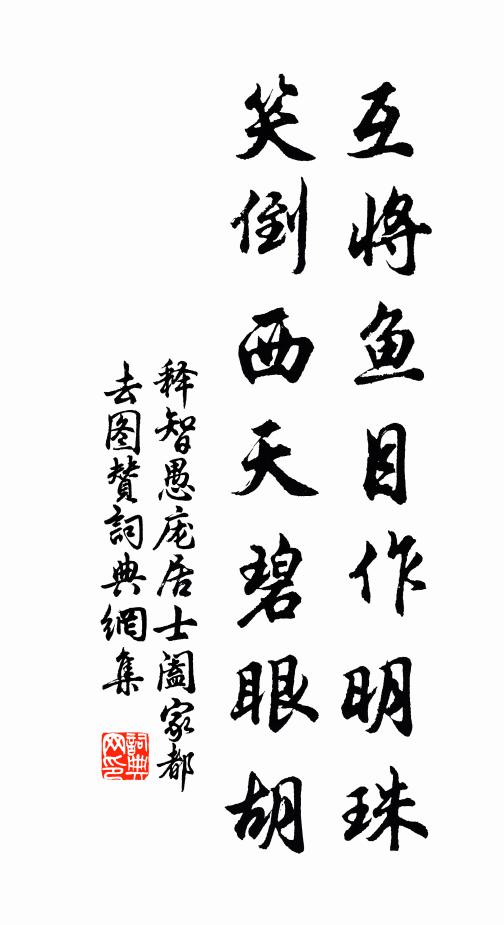 互将鱼目作明珠
笑倒西天碧眼胡
释智愚庞居士阖家都
去图赞詞典網集
詞典
网印